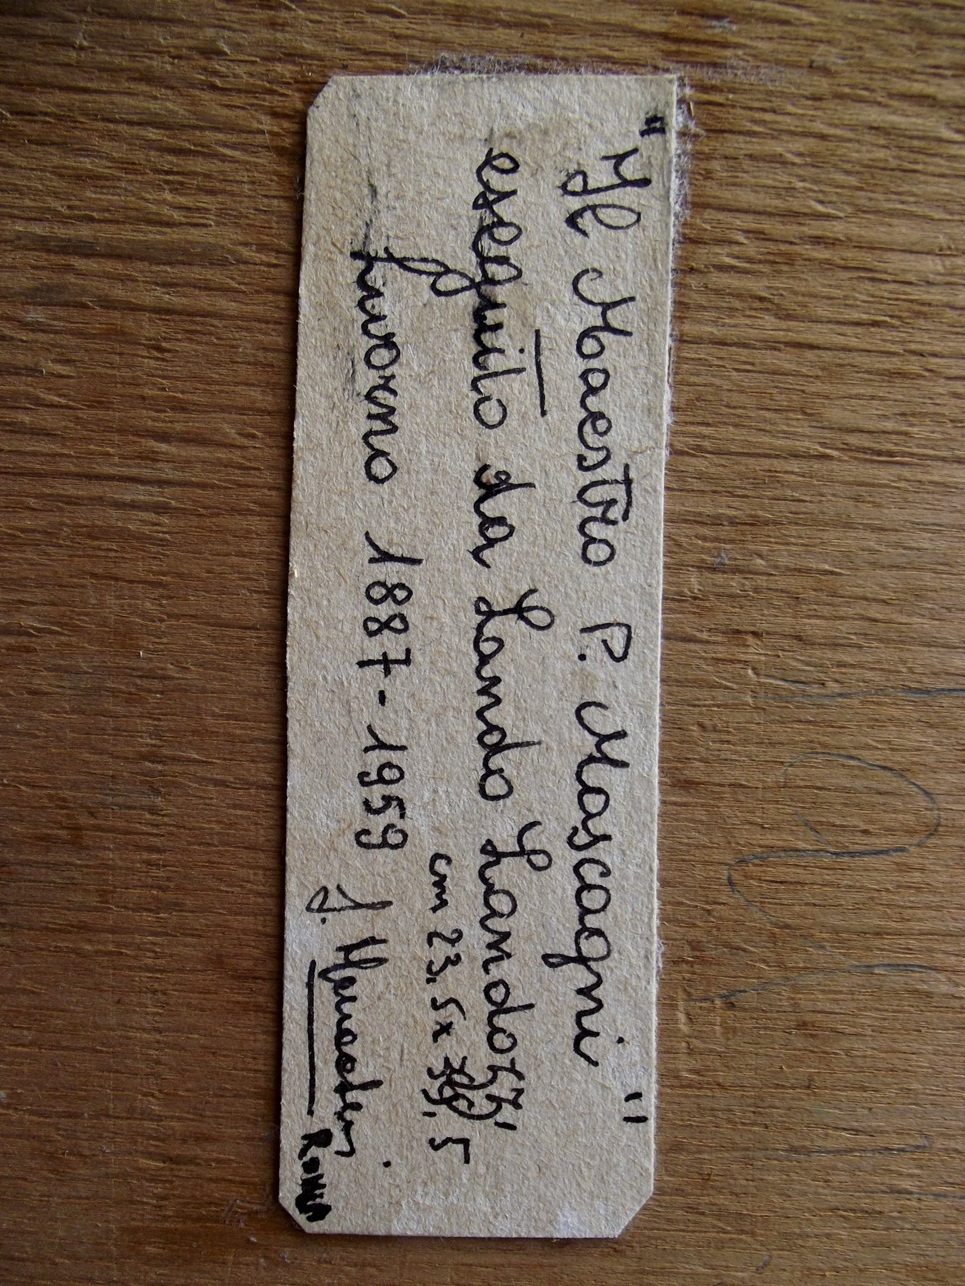 "Il Maestro P. Mascagni"
eseguito da Lando Landozzi,
Livorno 1887-1959
cm 23,5x ,5
J.
ROMA